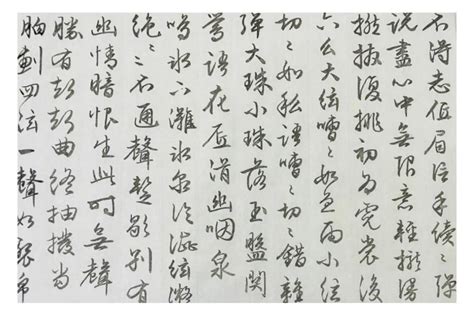 不得志低眉信手續〻彈
說盡心中無限意輕攏慢
撚抹復挑初為霓裳後
六幺大弦嘈〻如急雨小弦
切〻如私語嘈〻切〻錯雜
彈大珠小珠落玉盤関
鶯語花底滑幽咽泉
冰下灘冰泉冷澁弦凝
絕〻不通聲暫歇別有
幽情暗恨生此時無聲
勝有曲終抽撥當
胸劃四弦一聲如裂帛